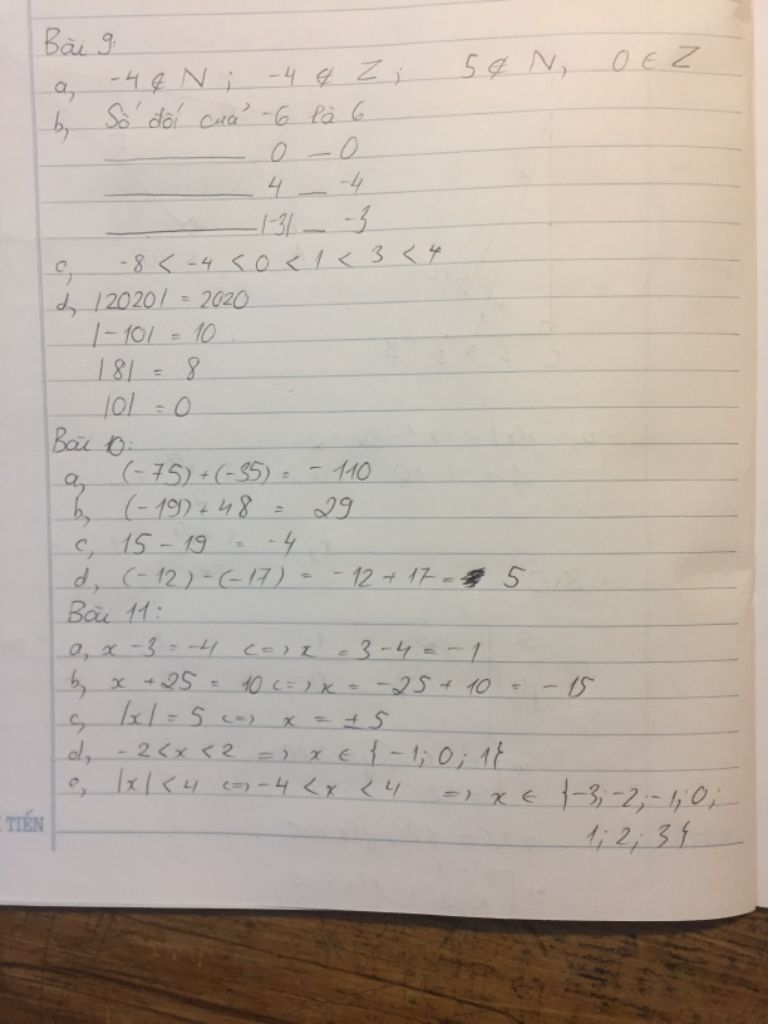 Bài 9:
a, -4 ∉ N ; -4 ∉ Z ; 5 ∉ N, 0 ∈ Z
b, Số đối của -6 là 6
0 — 0
4 — -4
|-3| — -3
c, -8 < -4 < 0 < 1 < 3 < 4
d, |2020| = 2020
|-10| = 10
|8| = 8
|0| = 0
Bài 10:
a, (-75) + (-35) = -110
b, (-19) + 48 = 29
c, 15 - 19 = -4
d, (-12) - (-17) = -12 + 17 = 5
Bài 11:
a, x - 3 = -4 <=> x = 3 - 4 = -1
b, x + 25 = 10 <=> x = -25 + 10 = -15
c, |x| = 5 <=> x = ±5
d, -2 < x < 2 => x ∈ {-1; 0; 1}
e, |x| < 4 <=> -4 < x < 4 => x ∈ {-3; -2; -1; 0;
1; 2; 3}
TIẾN